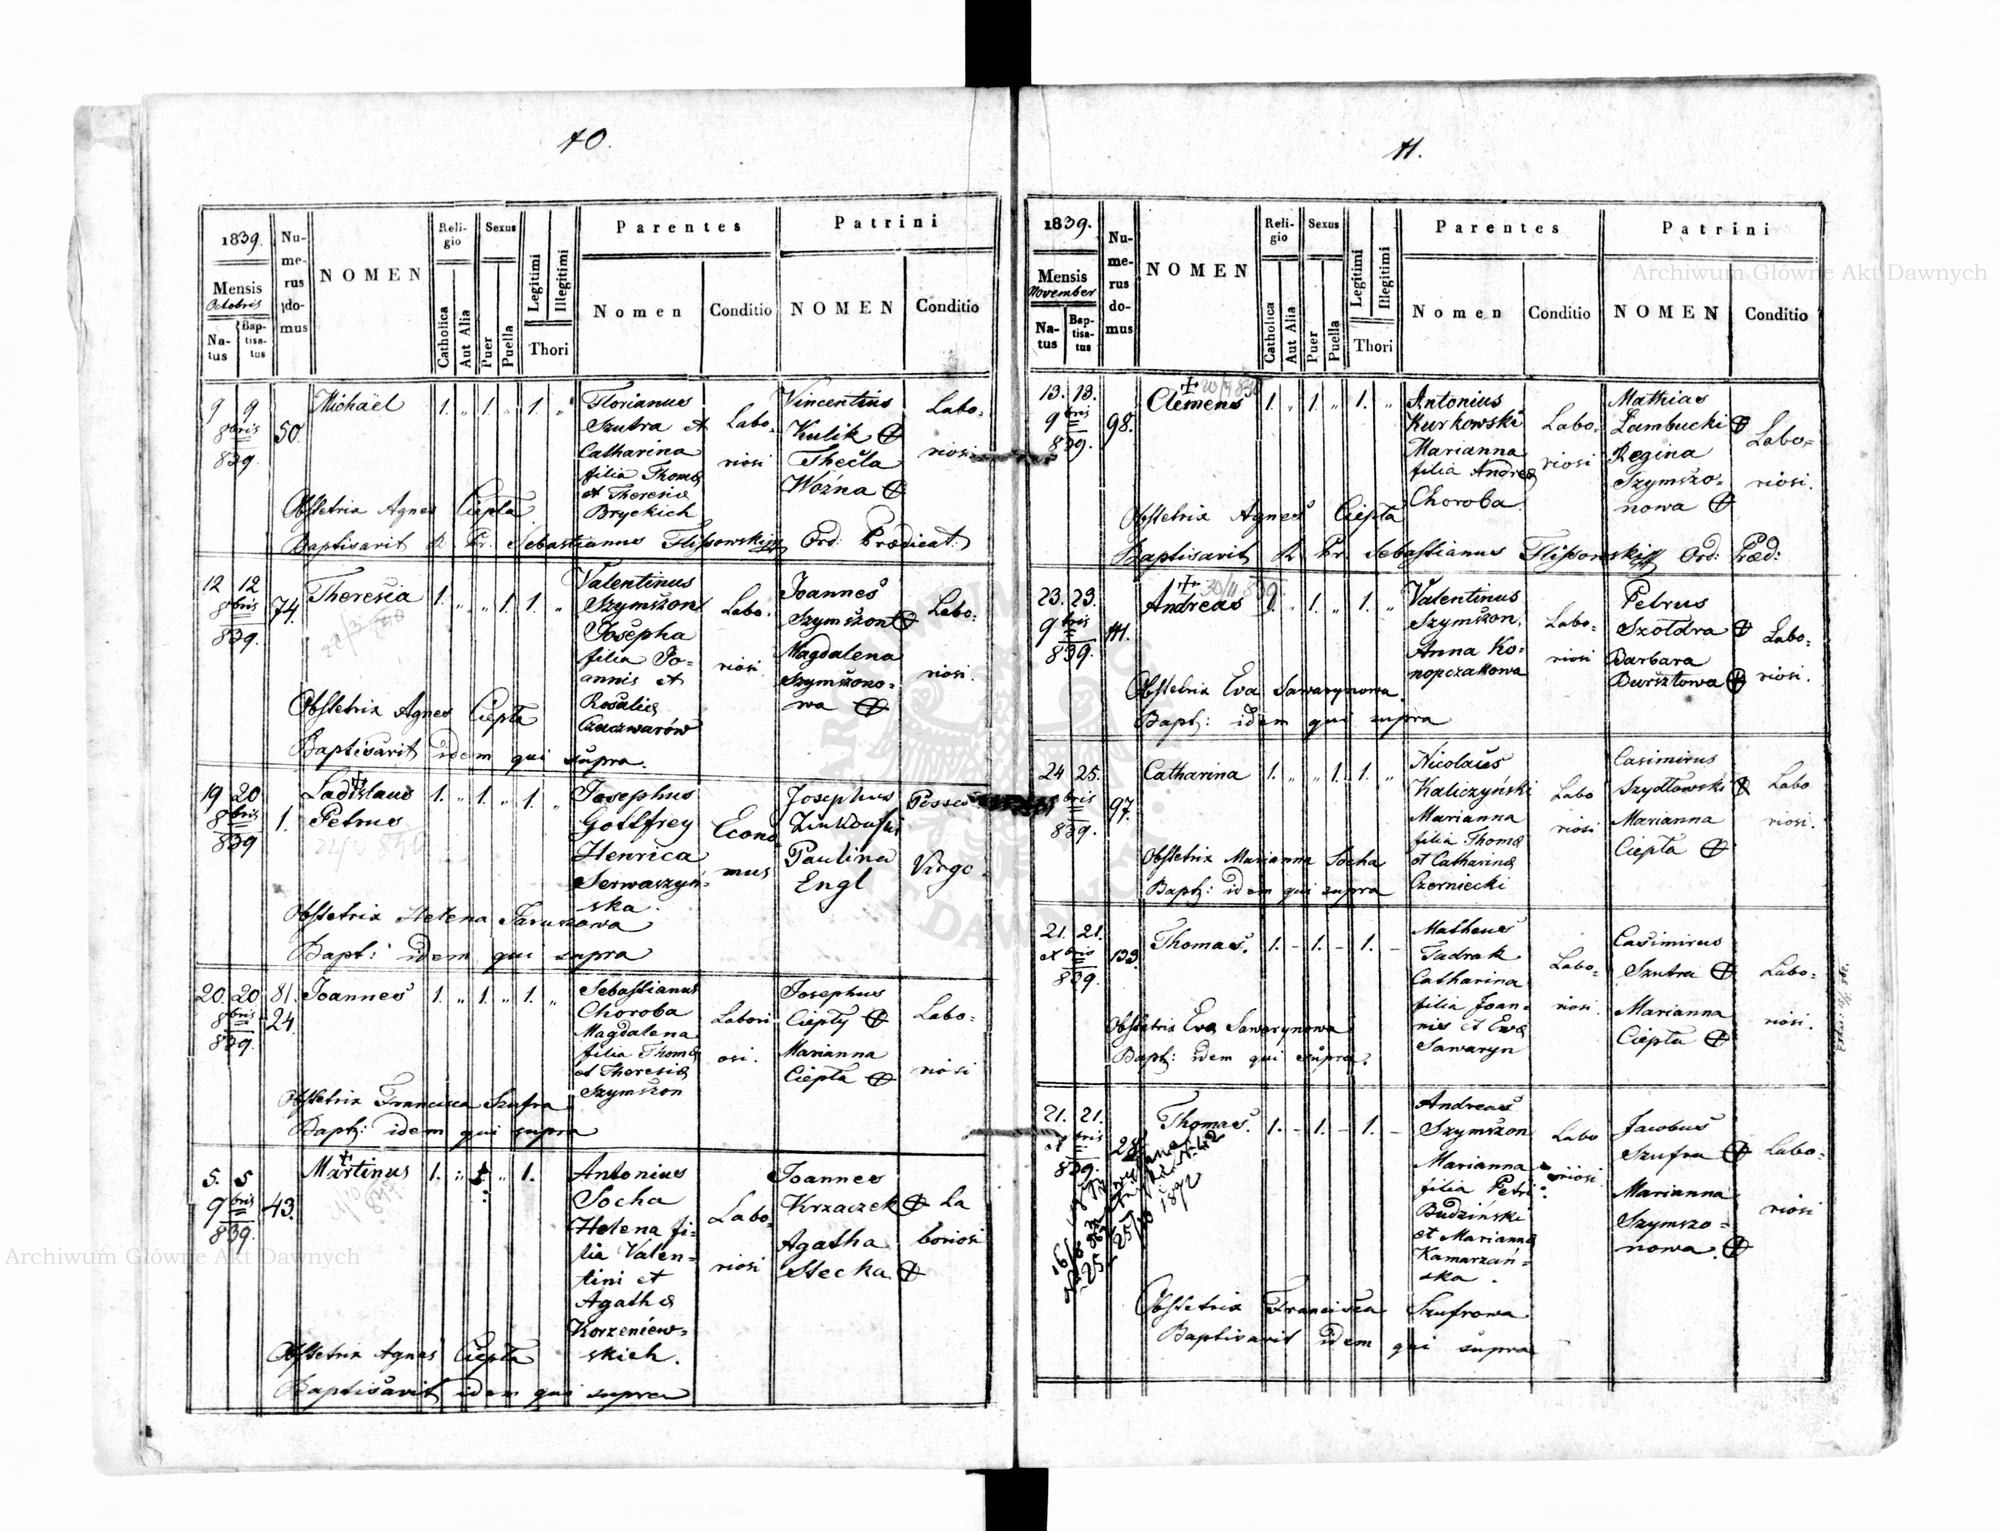 40.
1839.
Mensis
Octobris
Na-
tus
Bap-
tisa-
tus
Nu-
me-
rus
do-
mus
NOMEN
Reli-
gio
Catholica
Aut Alia
Sexus
Puer
Puella
Legitimi
Illegitimi
Thori
Parentes
Nomen
Conditio
Patrini
NOMEN
Conditio
9 9
8bris
839.
50.
Michaël
1. „ 1. „ 1. „
Florianus
Szutra et
Catharina
filia Thomæ
et Theresiæ
Bryckich
Labo-
riosi
Vincentius
Kulik
Thecla
Woźna
Labo-
riosi
Obstetrix Agnes Ciepła
Baptisavit R. Fr. Sebastianus Flissowski Ord: Prædicat:
12 12
8bris
839.
74.
Theresia
1. „ „ 1. 1. „
Valentinus
Szymszon
Josepha
filia Jo-
annis et
Rosaliæ
Czaczwarów
Labo-
riosi
Joannes
Szymszon
Magdalena
Szymszono-
wa
Labo-
riosi.
Obstetrix Agnes Ciepła
Baptisavit idem qui supra.
19 20
8bris
839
1.
Ladislaus
Petrus
1. „ 1. „ 1. „
Josephus
Gottfrey
Henrica
Serwaszyń-
ska.
Econo
mus
Josephus
Paulina
Engl
Virgo
Obstetrix Helena
Bapt: idem qui supra
20. 20
8bris
839.
81.
24.
Joannes
1. „ 1. „ 1. „
Sebastianus
Choroba
Magdalena
filia Thomæ
et Theresiæ
Szymszon
Labori-
osi.
Josephus
Ciepły
Marianna
Ciepła
Labo-
riosi
Obstetrix Francisca Szufra
Bapt: idem qui supra
5. 5
9bris
839.
43.
Martinus
1. „ 1. „ 1.
Antonius
Socha
Helena fi-
lia Valen-
tini et
Agathæ
Korzeniew-
skich.
Labo-
riosi
Joannes
Krzaczek
Agatha
Stecka
La
boriosi
Obstetrix Agnes Ciepła
Baptisavit idem qui supra
41.
1839.
Mensis
November
Na-
tus
Bap-
tisa-
tus
Nu-
me-
rus
do-
mus
NOMEN
Reli-
gio
Catholica
Aut Alia
Sexus
Puer
Puella
Legitimi
Illegitimi
Thori
Parentes
Nomen
Conditio
Patrini
NOMEN
Conditio
13. 13.
9bris
839.
98.
Clemens
1. „ 1. „ 1. „
Antonius
Kurkowski
Marianna
filia Andreæ
Choroba
Labo-
riosi
Mathias
Łambucki
Regina
Szymszo-
nowa
Labo-
riosi.
Obstetrix Agnes Ciepła
Baptisavit R. Fr. Sebastianus Flissowski Ord: Præd:
23. 23.
9bris
839.
111.
Andreas
30/11 839.
1. „ 1. „ 1. „
Valentinus
Szymszon,
Anna Ko-
nopczakowa
Labo-
riosi
Petrus
Szołdra
Barbara
Bursztowa
Labo-
riosi.
Obstetrix Eva Sawarynowa
Bapt: idem qui supra
24 25.
9bris
839.
97.
Catharina
1. „ „ 1. 1. „
Nicolaus
Kaliczyński
Marianna
filia Thomæ
et Catharinæ
Czerniecki
Labo
riosi
Casimirus
Szydłowski
Marianna
Ciepła
Labo
riosi.
Obstetrix Marianna Socha
Bapt: idem qui supra
21. 21.
xbris
839.
133.
Thomas.
1. – 1. – 1. –
Matheus
Tadrak
Catharina
filia Joan-
nis et Evæ
Sawaryn
Labo-
riosi.
Casimirus
Szutra
Marianna
Ciepła
Labo-
riosi.
Obstetrix Eva Sawarynowa
Bapt: idem qui supra.
21. 21.
xbris
839.
28.
Thomas.
1. – 1. – 1. –
Andreas
Szymszon
Marianna
filia Petri
Budziński
et Marianna
Kamarzań-
ska.
Labo
riosi.
Jacobus
Szufra
Marianna
Szymszo-
nowa.
Labo-
riosi
Obstetrix Francisca Szufrowa
Baptisavit idem qui supra
Archiwum Główne Akt Dawnych
Archiwum Główne Akt Dawnych